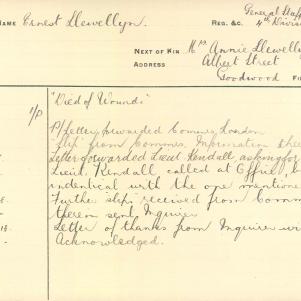 General Staff
NAME Ernest Llewellyn. REG. &C. 4th Division
NEXT OF KIN Mrs Annie Llewelly
ADDRESS Albert Street
Goodwood
"Died of Wounds"
P/ Letter forwarded Commrs London
Slip from Commrs. Information shee
Letter forwarded Lieut. Kendall asking for
Lieut. Kendall called at Office, b
indentical with the one mentione
Further slip received from Comm
thereon sent Inquirer
Letter of thanks from Inquirer
Acknowledged.